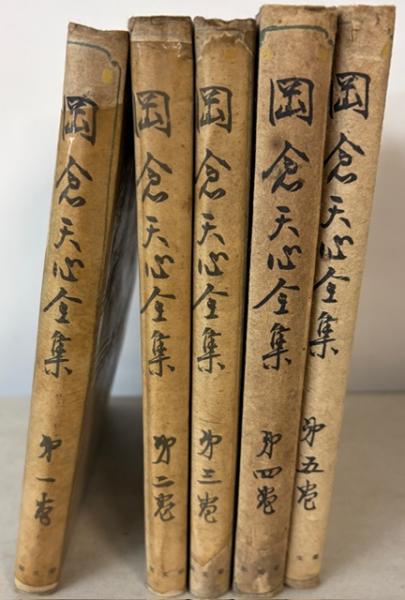 岡倉天心全集 第一巻
岡倉天心全集 第二巻
岡倉天心全集 第三巻
岡倉天心全集 第四巻
岡倉天心全集 第五巻